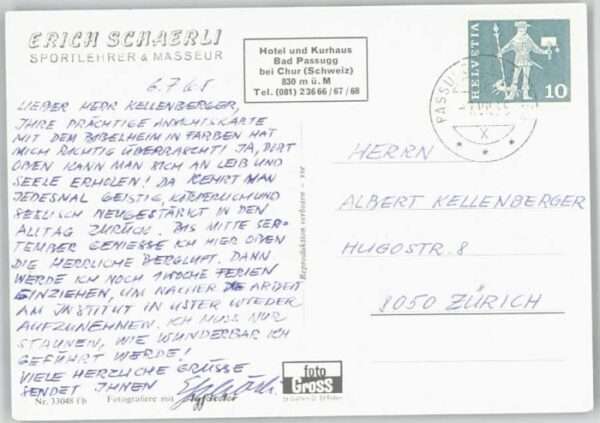 ERICH SCHAERLI
SPORTLEHRER & MASSEUR
Hotel und Kurhaus
Bad Passugg
bei Chur (Schweiz)
830 m ü. M
Tel. (081) 2 36 66 / 67 / 68
HELVETIA
10
PASSUGG
X
6.7.65
LIEBER HERR KELLENBERGER,
IHRE PRÄCHTIGE ANSICHTSKARTE
MIT DEM BIBELHEIM IN FARBEN HAT
MICH RICHTIG ÜBERRASCHT! JA, DORT
OBEN KANN MAN SICH AN LEIB UND
SEELE ERHOLEN! DA KEHRT MAN
JEDESMAL GEISTIG, KÖRPERLICH UND
SEELISCH NEUGESTÄRKT IN DEN
ALLTAG ZURÜCK. BIS MITTE SEP-
TEMBER GENIESSE ICH HIER OBEN
DIE HERRLICHE BERGLUFT. DANN
WERDE ICH NOCH 1 WOCHE FERIEN
EINZIEHEN, UM NACHER DIE ARBEIT
AM INSTITUT IN USTER WIEDER
AUFZUNEHMEN. ICH MUSS NUR
STAUNEN, WIE WUNDERBAR ICH
GEFÜHRT WERDE!
VIELE HERZLICHE GRÜSSE
SENDET IHNEN
HERRN
ALBERT KELLENBERGER
HUGOSTR. 8
8050 ZÜRICH
Reproduktion verboten
Nr. 33048 fb
Fotografiere mit
foto
Gross